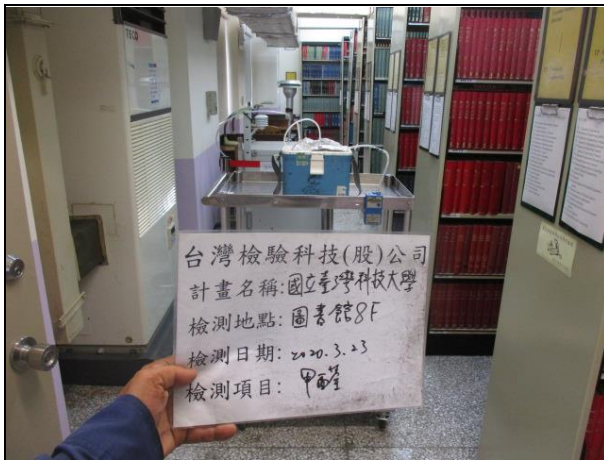 台灣檢驗科技(股)公司
計畫名稱:國立臺灣科技大學
檢測地點:圖書館8F
檢測日期:2020.3.23
檢測項目:甲醛